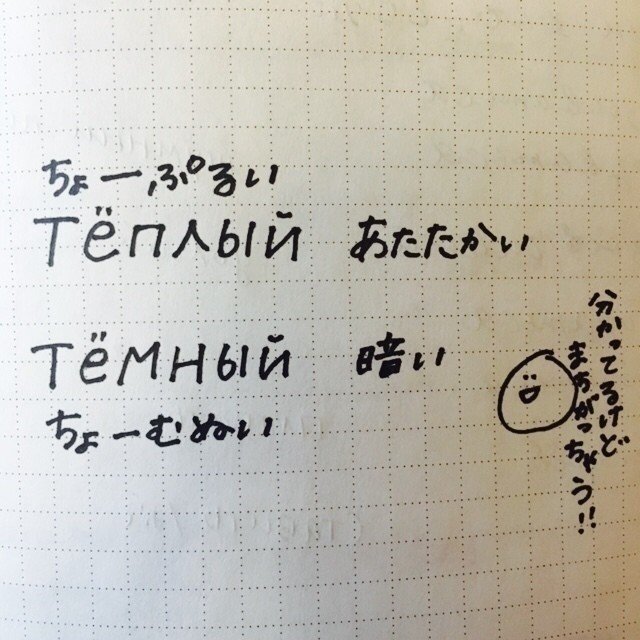 ちょーぷるい
тёплый あたたかい
тёмный 暗い
ちょーむぬい
分かってるけど
まちがっちゃう!!